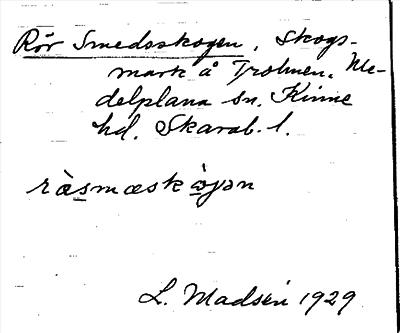 Rör Smedsskogen, Skogs-
mark å Trolmen. Me-
delplana sn. Kinne
hd. Skarab. l.
ràsmæskò̱gən
L. Madsén 1929